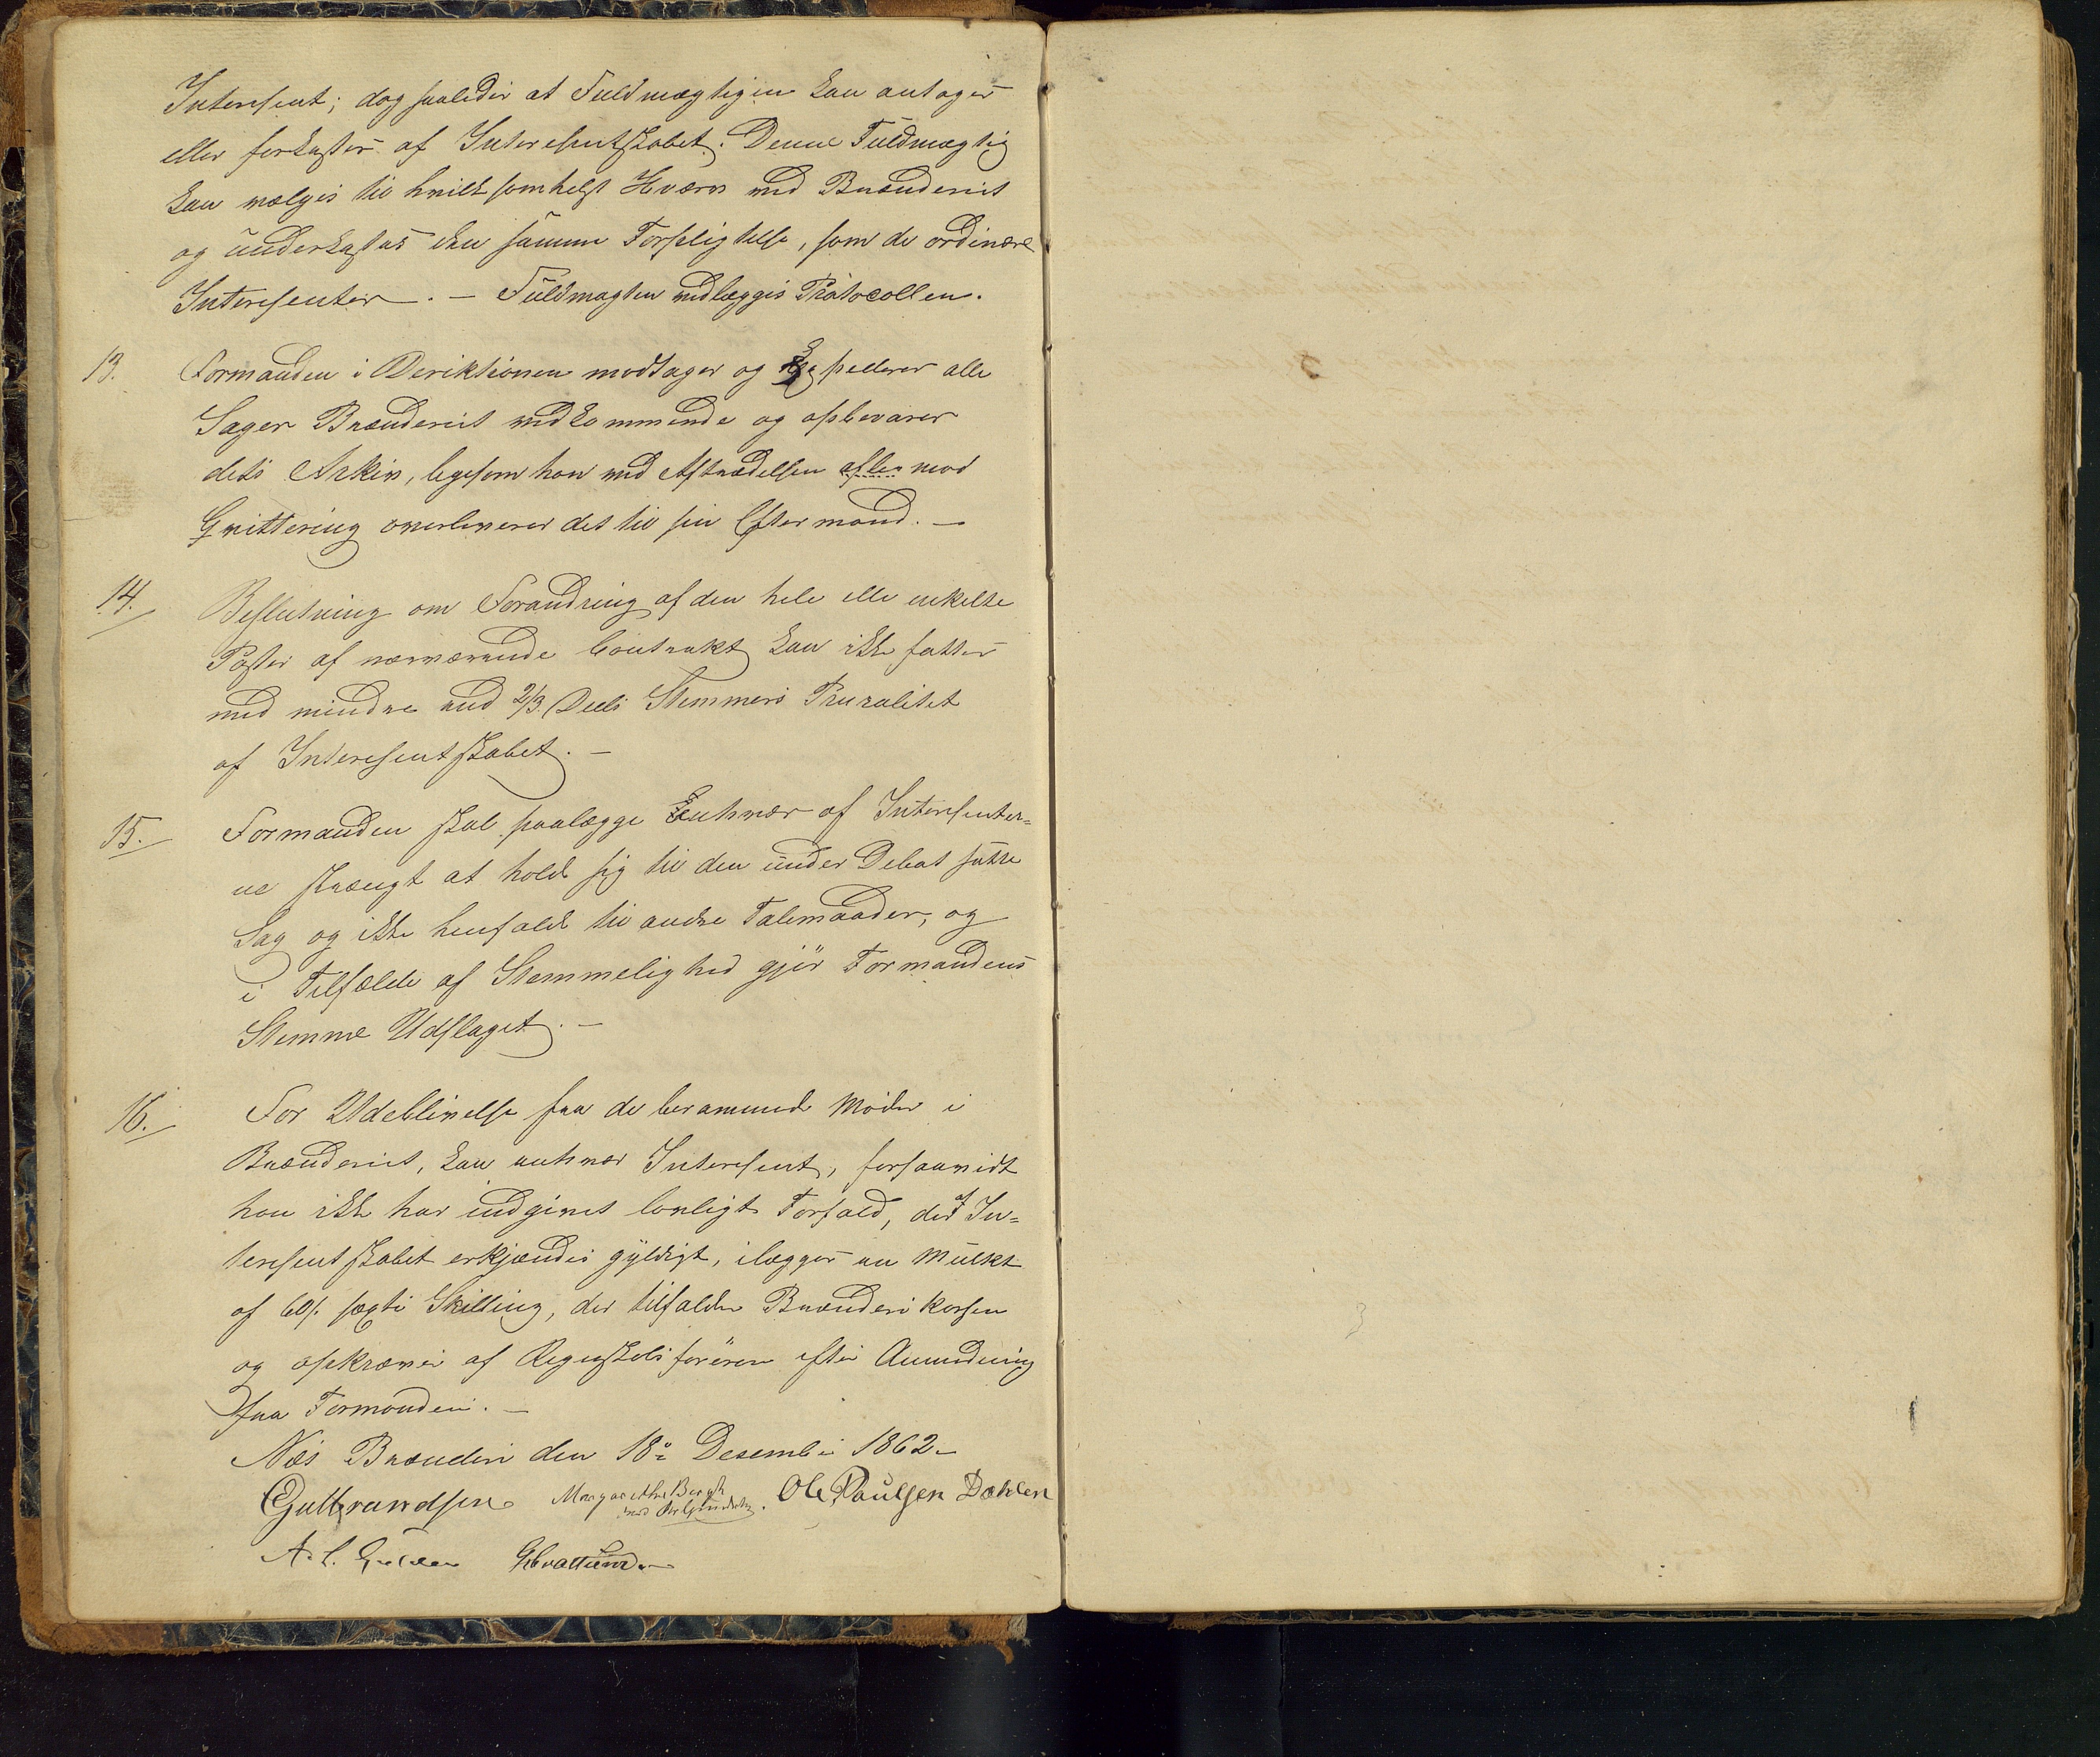 Interesent; dog saaledes at Fuldmægtigen kan antages
eller forkastes af Interesentskabet. Denne Fuldmægtig
kan vælges til hvilketsomhelst Hværv ved Brænderiet
og underkastes den samme Forpligtelse, som de ordinære
Interesenter. — Fuldmagten vedlægges Protocollen.
13. Formanden i Deriktionen modtager og Expederer alle
Sager Brænderiet vedkommende og opbevarer
dets Arkiv, ligesom han ved Aftrædelsen mod
Qvittering overleverer det til sin Eftermand. —
14. Beslutning om Forandring af den hele elle enkelte
Poster af nærværende Contrakt kan ikke fattes
med mindre end 2/3. Deels Stemmers Pruralitet
af Interesentskabet. —
15. Formanden skal paalægge Enhver af Interesenter=
ne strængt at holde sig til den under Debat satte
Sag og ikke henfalde til andre Talemaader, og
i Tilfælde af Stemmelighed gjør Formandens
Stemme Udslaget. —
16. For Udeblivelse fra de berammede Møder i
Brænderiet, kan enhver Interesent, forsaavidt
han ikke har indgivet lovligt Forfald, der af In=
teresentskabet erkjændes gyldigt, ilægges en Mulkt
af 60 s. sexti Skilling, der tilfalder Brænderikassen
og opkræves af Regnskabsføreren efter Anmodning
fra Formanden. —
Næs Brænderi den 18de Desember 1862 —
Gulbrandsen Margarethe Bergh Ole Paulsen Dæhlen
med
A. L.